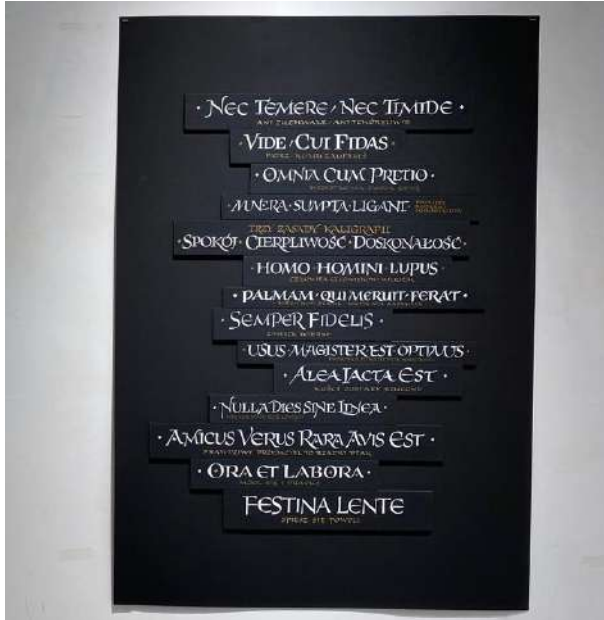 · NEC TEMERE · NEC TIMIDE ·
ANI ZUCHWALE · ANI TCHÓRZLIWIE
· VIDE · CUI FIDAS ·
PATRZ · KOMU ZAUFAŁEŚ
· OMNIA CUM PRETIO ·
· MUNERA · SUMPTA · LIGANT ·
TRZY ZASADY KALIGRAFII
· SPOKÓJ · CIERPLIWOŚĆ · DOSKONAŁOŚĆ ·
· HOMO · HOMINI · LUPUS ·
CZŁOWIEK CZŁOWIEKOWI WILKIEM
· PALMAM · QUI MERUIT · FERAT ·
· SEMPER FIDELIS ·
ZAWSZE WIERNY
· USUS · MAGISTER EST OPTIMUS ·
· ALEA JACTA EST ·
KOŚCI ZOSTAŁY RZUCONE
· NULLA DIES SINE LINEA ·
· AMICUS VERUS RARA AVIS EST ·
PRAWDZIWY PRZYJACIEL TO RZADKI PTAK
· ORA ET LABORA ·
MÓDL SIĘ I PRACUJ
FESTINA LENTE
SPIESZ SIĘ POWOLI